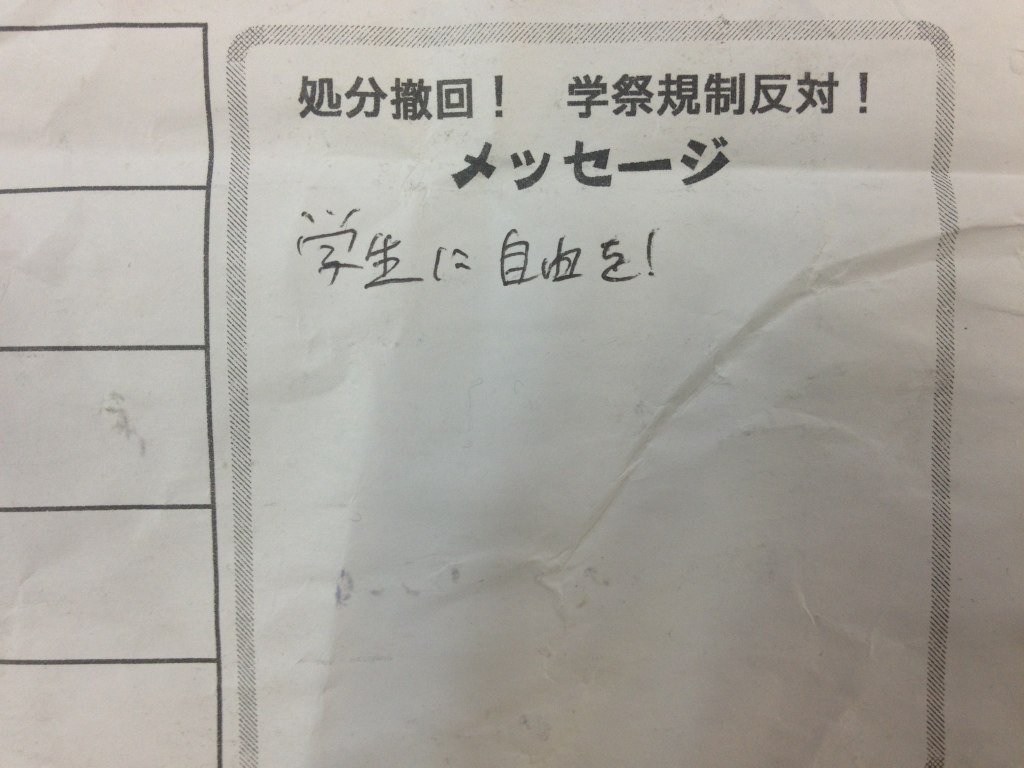 処分撤回！　学祭規制反対！
メッセージ
学生に自由を!